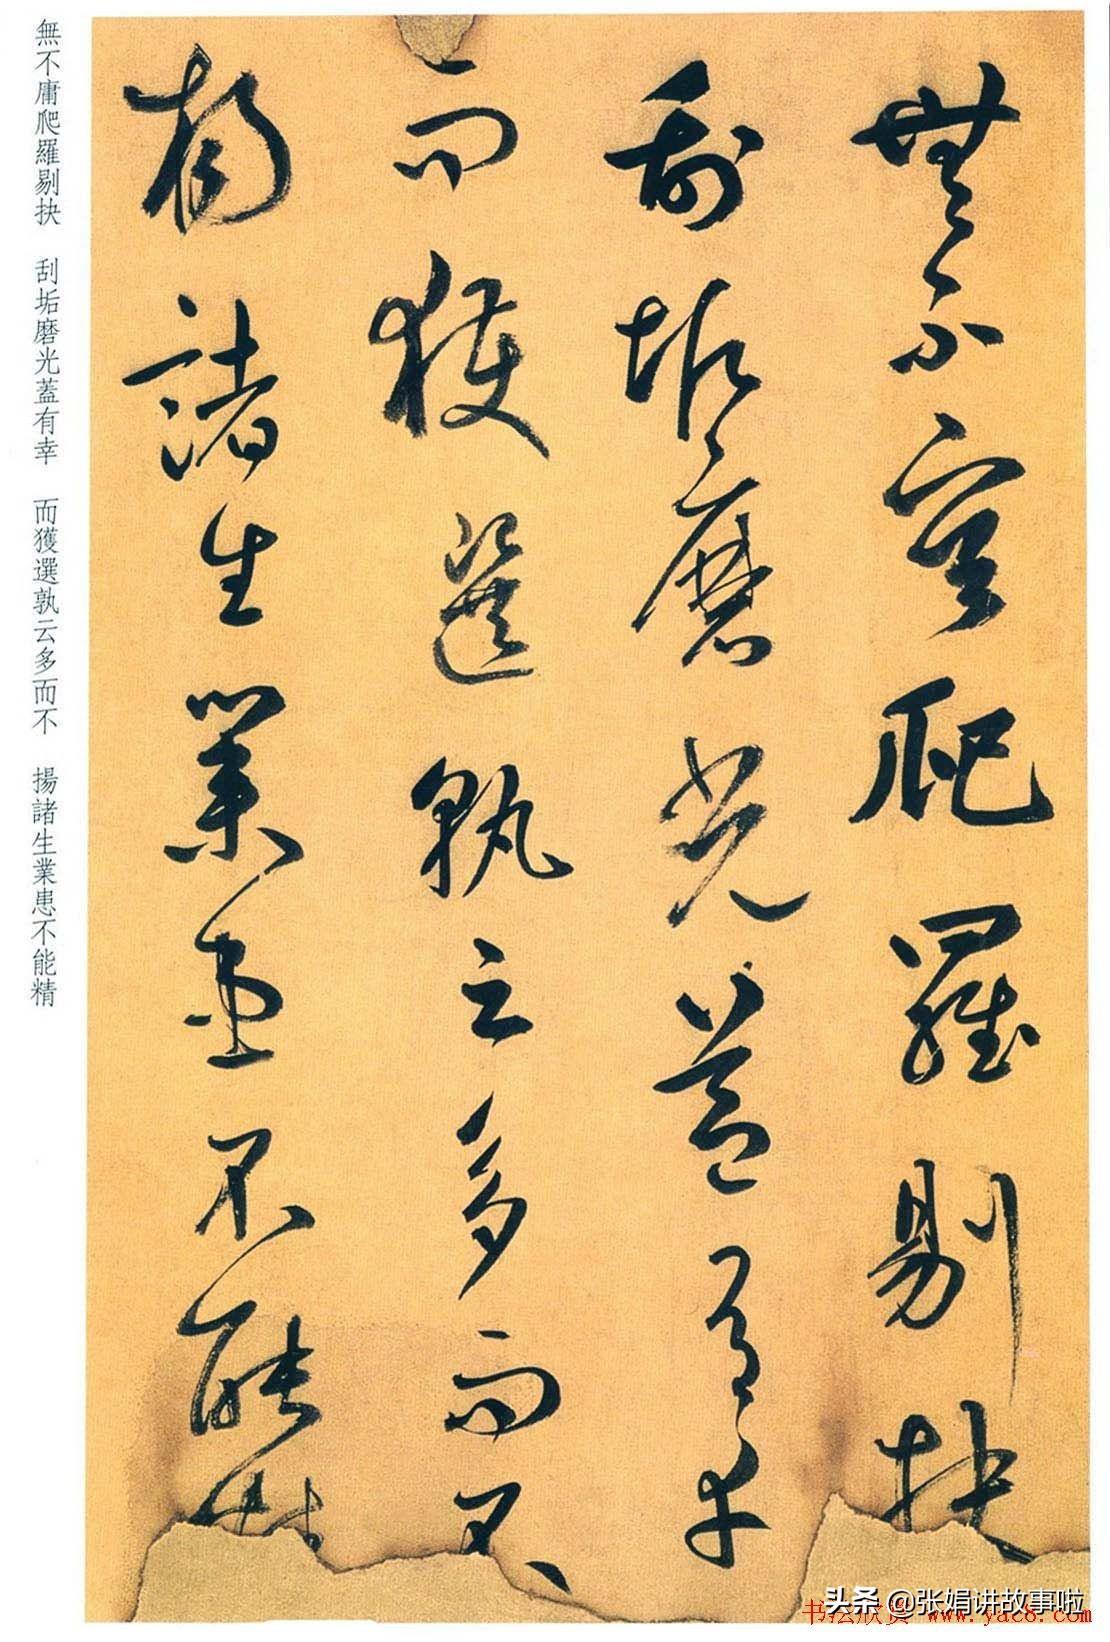 無不庸爬羅剔抉
刮垢磨光蓋有幸
而獲選孰云多而不
揚諸生業患不能精
無不庸爬羅剔抉 刮垢磨光蓋有幸 而獲選孰云多而不 揚諸生業患不能精
头条 @张娟讲故事啦
书法欣赏 www.yac8.com